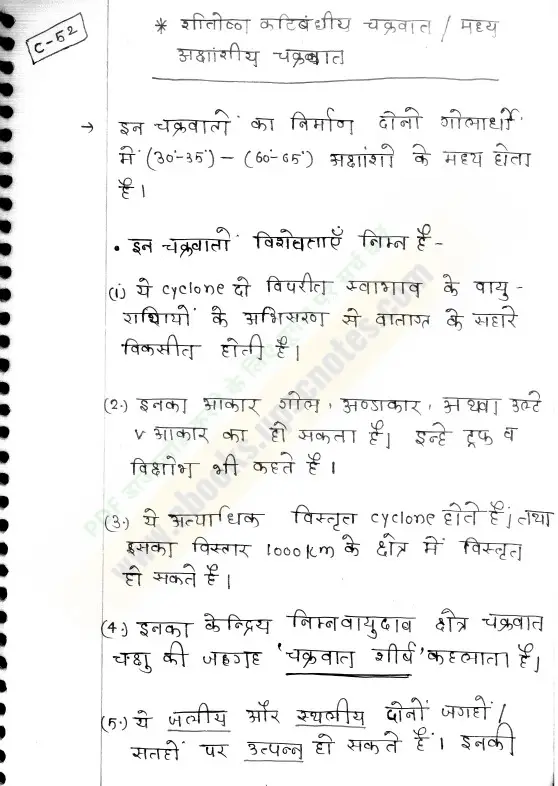 C-52
* शीतोष्ण कटिबंधीय चक्रवात / मध्य
अक्षांशीय चक्रवात
→ इन चक्रवातों का निर्माण दोनो गोलार्धों
में (30°-35°) - (60°-65°) अक्षांशो के मध्य होता
है।
• इन चक्रवातों विशेषताएँ निम्न है -
(1) ये cyclone दो विपरीत स्वाभाव के वायु -
राशियों के अभिसरण से वाताग्र के सहारे
विकसीत होती है।
(2.) इनका आकार गोल, अण्डाकार, अथवा उल्टे
v आकार का हो सकता है। इन्हे ट्रफ व
विक्षोभ भी कहते है।
(3.) ये अत्याधिक विस्तृत cyclone होते है; तथा
इसका विस्तार 1000 km के क्षेत्र में विस्तृत
हो सकते है।
(4.) इनका केन्द्रिय निम्नवायुदाब क्षेत्र चक्रवात
चक्षु की जहगह 'चक्रवात शीर्ष' कहलाता है।
(5.) ये जलीय और स्थलीय दोनों जगहों /
सतहों पर उत्पन्न हो सकते हैं। इनकी